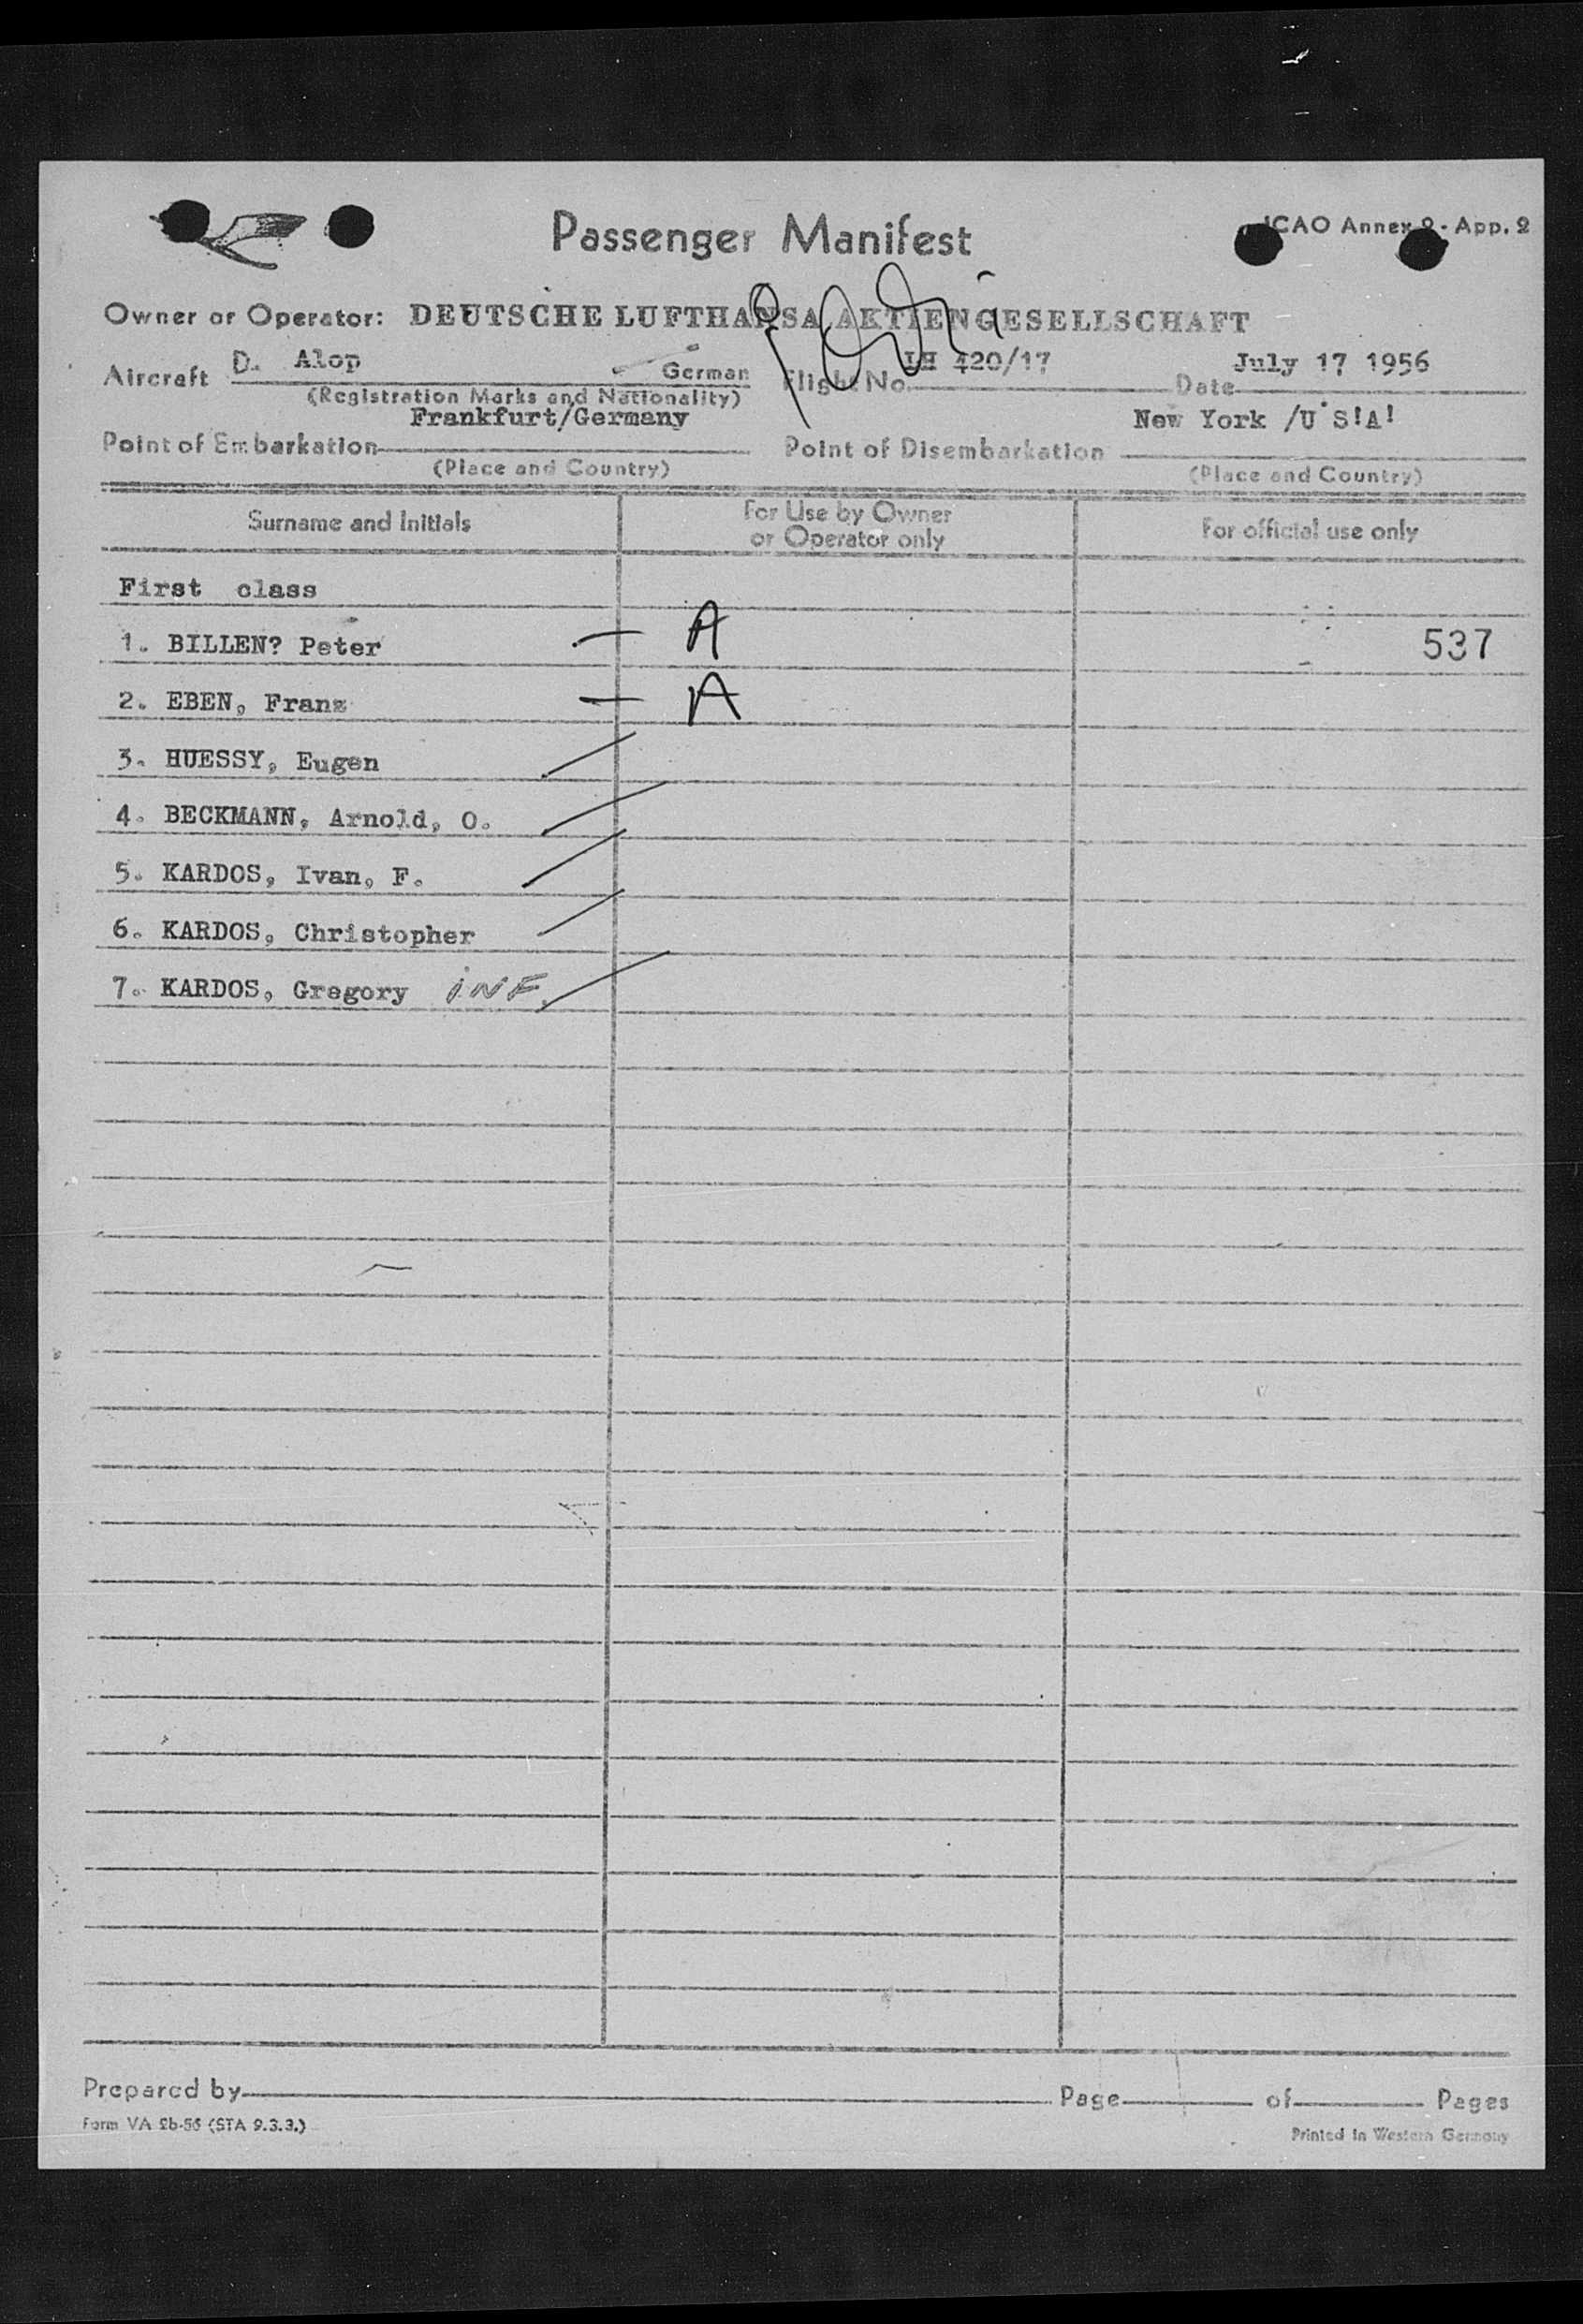 Passenger Manifest
ICAO Annex 9 - App. 2
Owner or Operator: DEUTSCHE LUFTHANSA AKTIENGESELLSCHAFT
Aircraft D. Alop German Flight No. LH 420/17 Date July 17 1956
(Registration Marks and Nationality)
Point of Embarkation Frankfurt/Germany Point of Disembarkation New York /U S!A!
(Place and Country) (Place and Country)
Surname and Initials For Use by Owner or Operator only For official use only
First class
1. BILLEN? Peter — A 537
2. EBEN, Franz — A
3. HUESSY, Eugen
4. BECKMANN, Arnold, O.
5. KARDOS, Ivan, F.
6. KARDOS, Christopher
7. KARDOS, Gregory INF.
Prepared by Page of Pages
Form VA 2b-56 (STA 9.3.3.) Printed in Western Germany